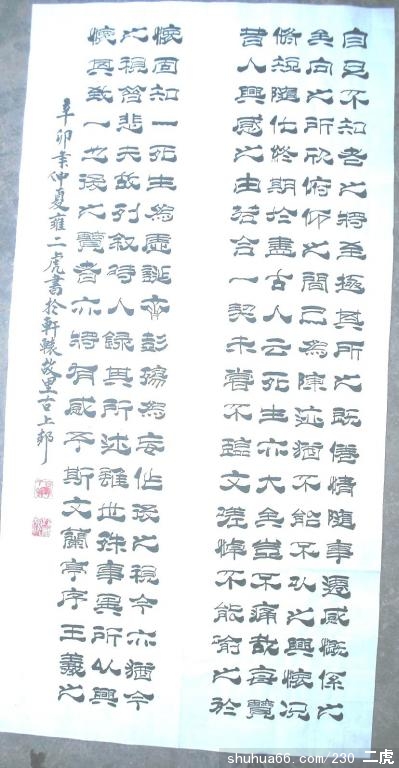 自足不知老之將至極其所之既倦情隨事遷感慨係之
矣向之所欣俯仰之間已為陳迹猶不能不以之興懷況
脩短隨化終期於盡古人云死生亦大矣豈不痛哉每覽
昔人興感之由若合一契未嘗不臨文嗟悼不能喻之於
懷固知一死生為虛誕齊彭殤為妄作後之視今亦猶今
之視昔悲夫故列敘時人錄其所述雖世殊事異所以興
懷其致一也後之覽者亦將有感于斯文蘭亭序王羲之
辛卯年仲夏雍二虎書於軒轅故里古上邽
shuhua66.com/230 二虎